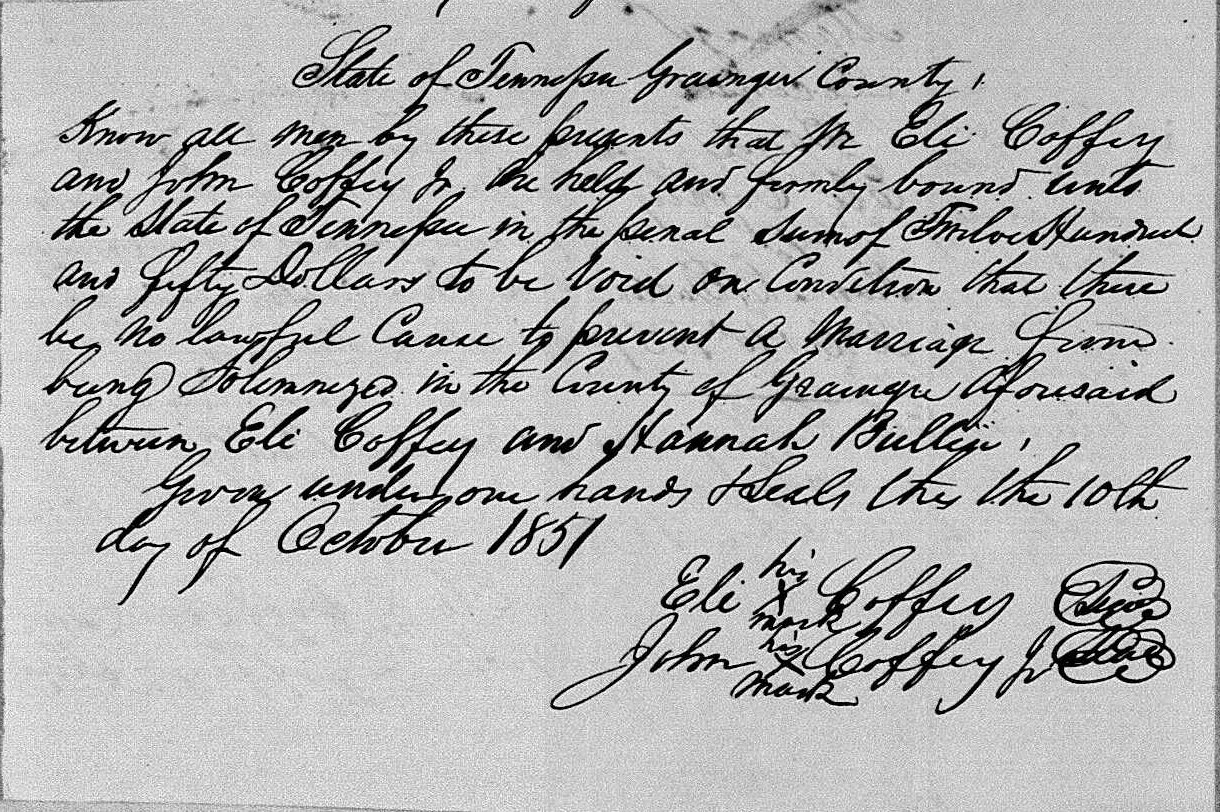 State of Tennessee Grainger County,
Know all men by these presents that We Eli Coffey
and John Coffey Jr. are held and firmly bound unto
the State of Tennessee in the penal sum of Twelve Hundred
and fifty Dollars to be Void on Condition that there
be no lawful Cause to prevent a Marriage from
being Solemnized in the County of Grainger aforesaid
between Eli Coffey and Hannah Bullen,
Given under our hands & Seals this the 10th
day of October 1851
Eli his X mark Coffey Seal
John his X mark Coffey Jr Seal